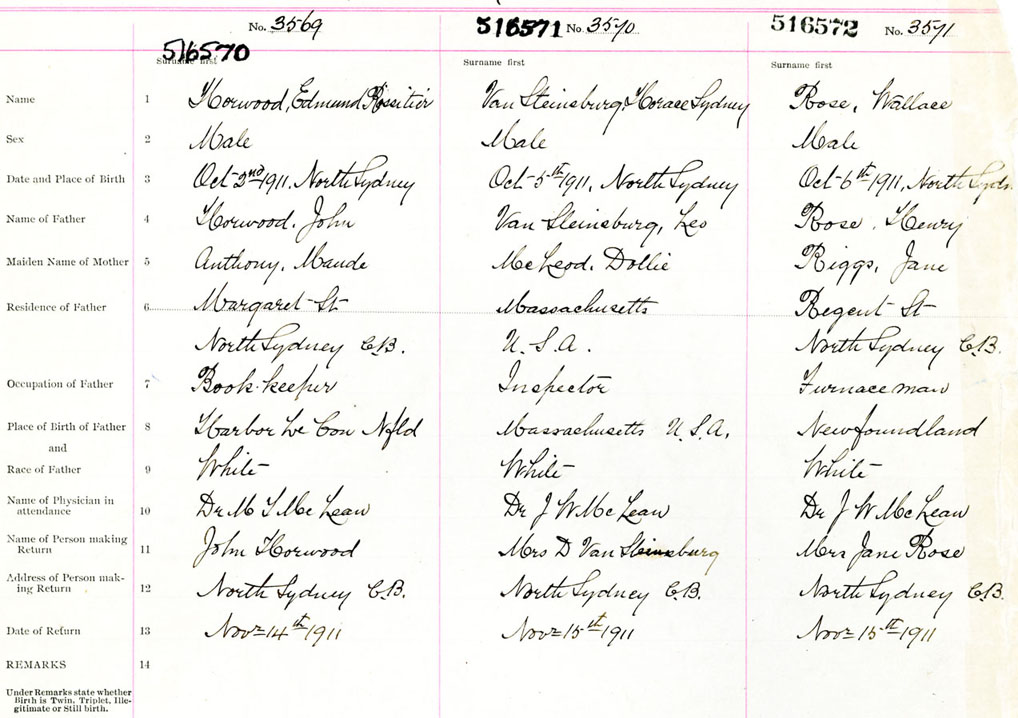 No. 3569 516571 No. 3570 516572 No. 3571
516570
Surname first Surname first Surname first
Name 1 Horwood, Edmund Rossitior Van Steinsburg, Horace Sydney Rose, Wallace
Sex 2 Male Male Male
Date and Place of Birth 3 Oct 2nd 1911, North Sydney Oct 5th 1911, North Sydney Oct 6th 1911, North Sydn
Name of Father 4 Horwood, John Van Steinsburg, Leo Rose, Henry
Maiden Name of Mother 5 Anthony, Maude McLeod, Dollie Riggs, Jane
Residence of Father 6 Margaret St Massachusetts Regent St
North Sydney C.B. U.S.A. North Sydney C.B.
Occupation of Father 7 Book-keeper Inspector Furnace man
Place of Birth of Father 8 Harbor Le Cou Nfld Massachusetts U.S.A. Newfoundland
and
Race of Father 9 White White White
Name of Physician in
attendance 10 Dr M T McLean Dr J W McLean Dr J W McLean
Name of Person making
Return 11 John Horwood Mrs D Van Steinsburg Mrs Jane Rose
Address of Person mak-
ing Return 12 North Sydney C.B. North Sydney C.B. North Sydney C.B.
Date of Return 13 Nov 14th 1911 Nov 15th 1911 Nov 15th 1911
REMARKS 14
Under Remarks state whether
Birth is Twin, Triplet, Ille-
gitimate or Still birth.